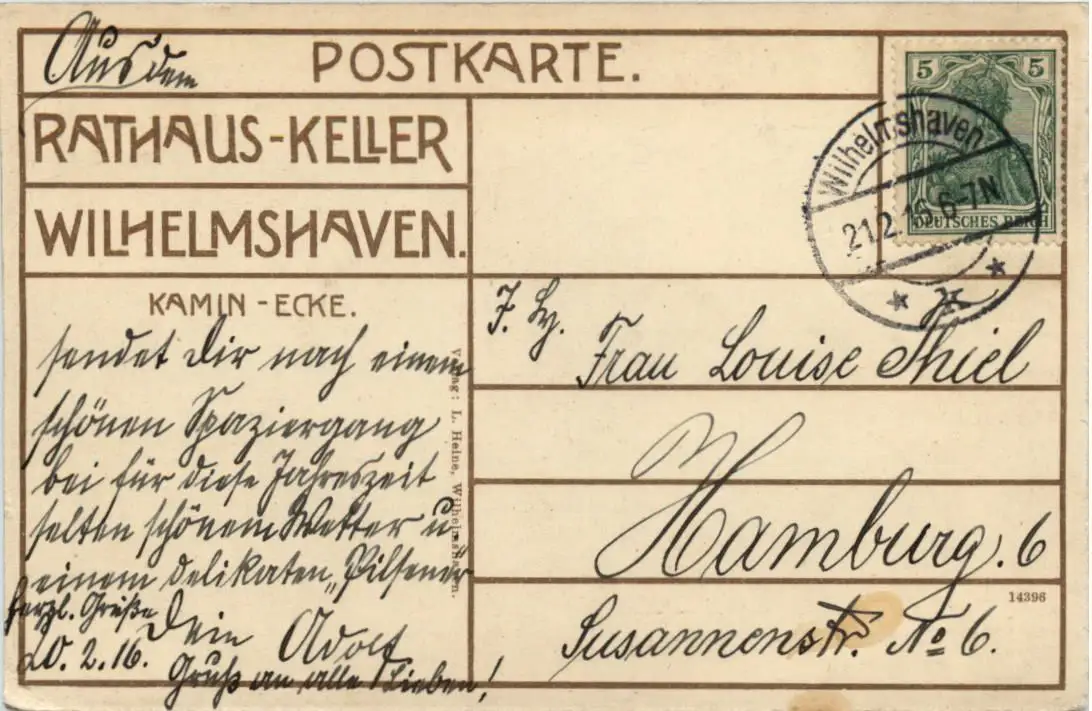 Aus dem
POSTKARTE.
RATHAUS-KELLER
WILHELMSHAVEN.
KAMIN-ECKE.
sendet Dir nach einem
schönen Spaziergang
bei für diese Jahreszeit
selten schönem Wetter u
einem delikaten „Pilsener"
herzl. Grüße
Dein Adolf
20. 2. 16.
Gruß an alle Lieben!
Verlag: L. Heine, Wilhelmshaven.
5 5
DEUTSCHES REICH
Wilhelmshaven
21.2.16 6-7N
Frau Louise Thiel
Hamburg. 6
14396
Susannenstr. No 6.